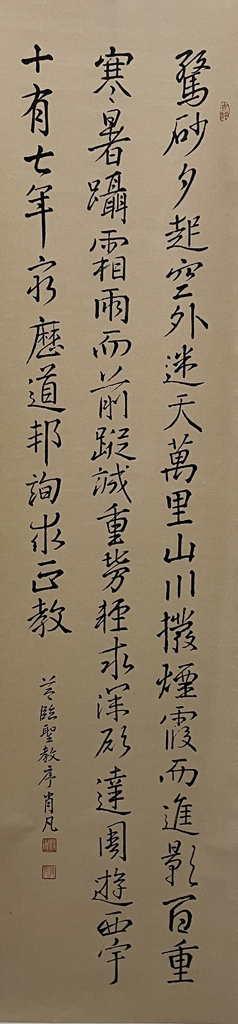 驚砂夕起空外迷天萬里山川撥煙霞而進影百重
寒暑躡霜雨而前蹤誠重勞輕求深願達周遊西宇
十有七年窮歷道邦詢求正教
臨聖教序肖凡